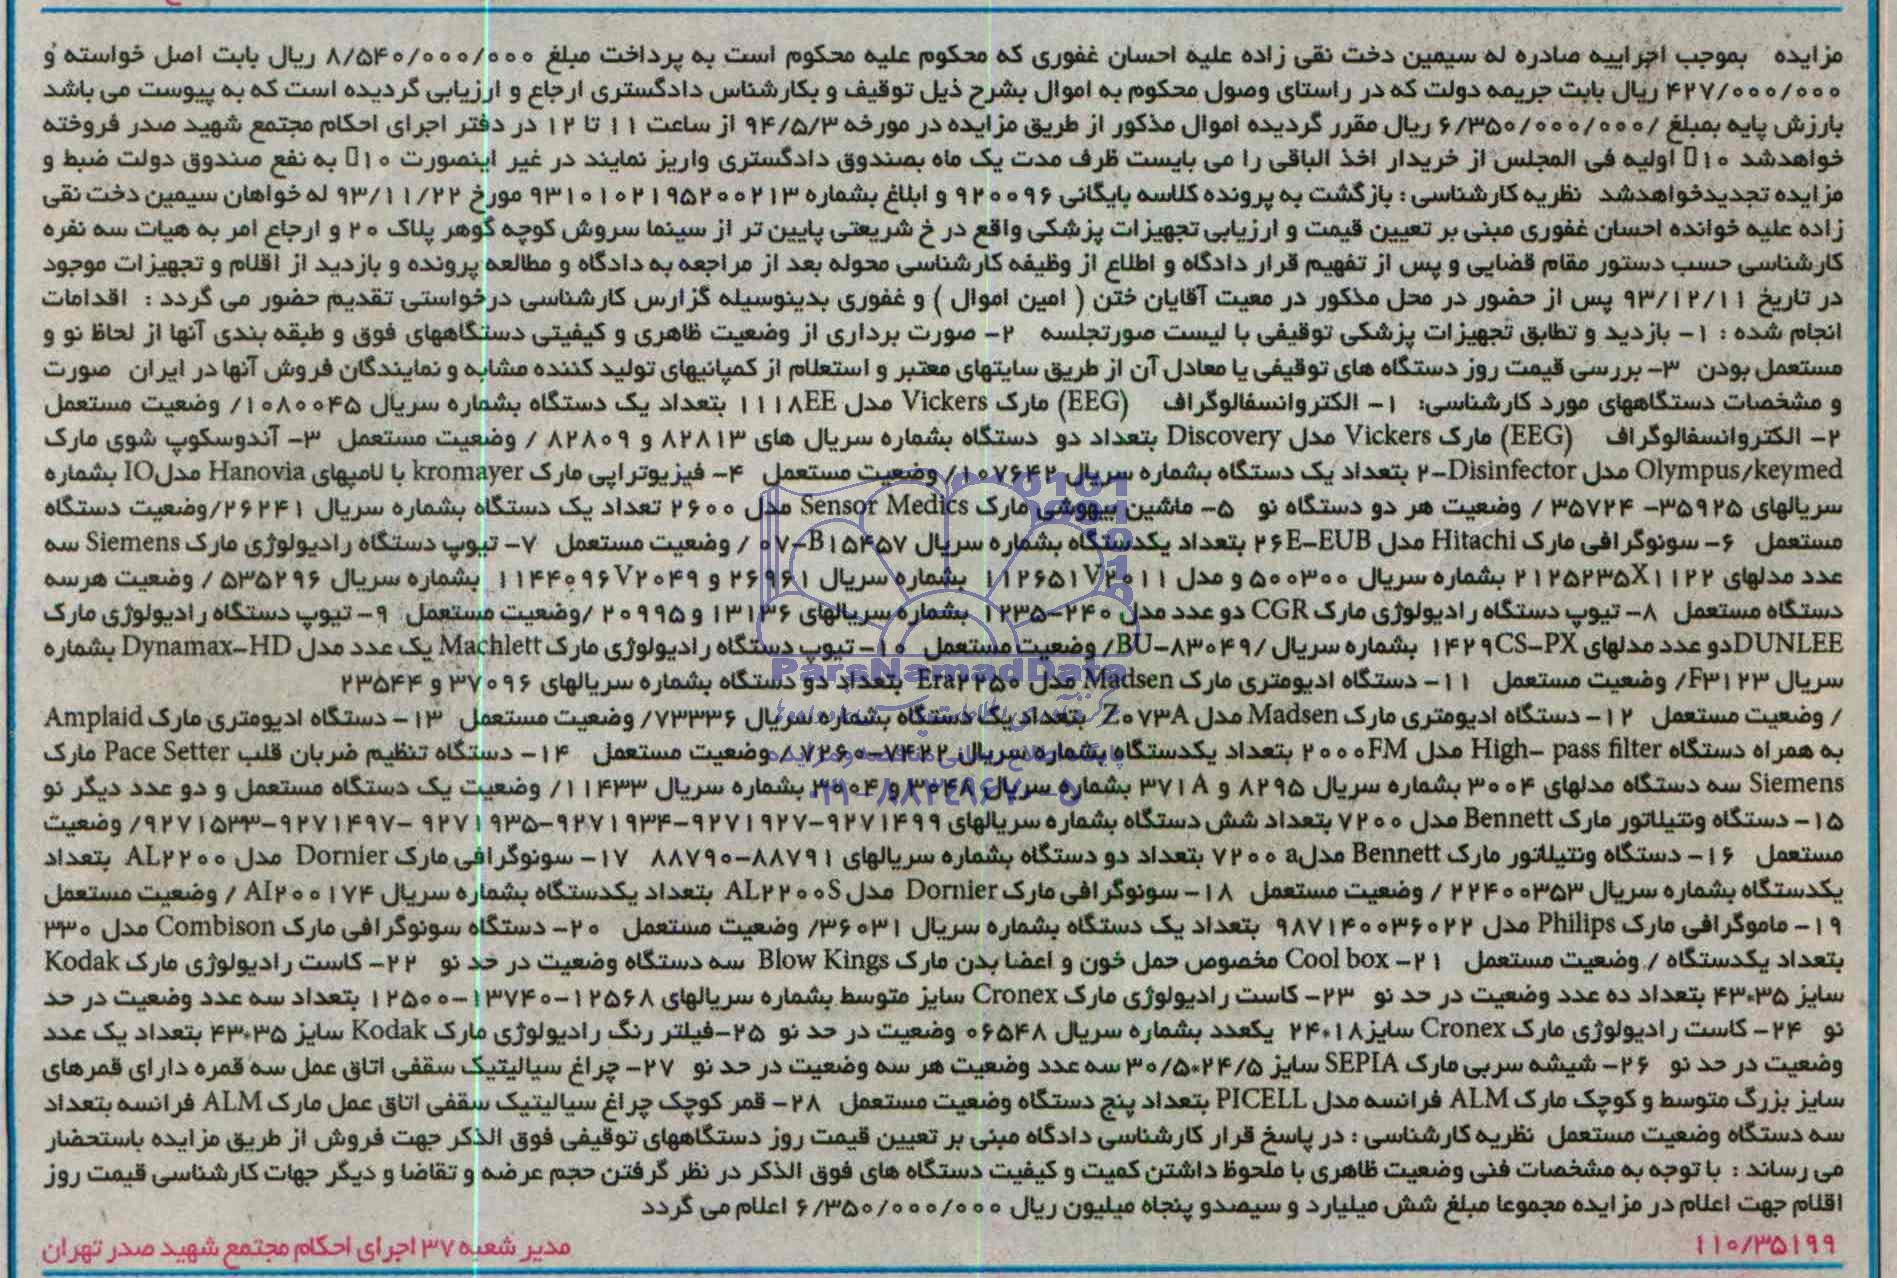 مزایده بموجب اجراییه صادره له سیمین دخت نقی زاده علیه احسان غفوری که محکوم علیه محکوم است به پرداخت مبلغ ۸/۵۴۰/۰۰۰/۰۰۰ ریال بابت اصل خواسته و
۴۲۷/۰۰۰/۰۰۰ ریال بابت جریمه دولت که در راستای وصول محکوم به اموال بشرح ذیل توقیف و بکارشناس دادگستری ارجاع و ارزیابی گردیده است که به پیوست می باشد
بارزش پایه بمبلغ /۶/۳۵۰/۰۰۰/۰۰۰ ریال مقرر گردیده اموال مذکور از طریق مزایده در مورخه ۹۴/۵/۳ از ساعت ۱۱ تا ۱۲ در دفتر اجرای احکام مجتمع شهید صدر فروخته
خواهدشد ۱۰ اولیه فی المجلس از خریدار اخذ الباقی را می بایست ظرف مدت یک ماه بصندوق دادگستری واریز نمایند در غیر اینصورت ۱۰ به نفع صندوق دولت ضبط و
مزایده تجدیدخواهدشد نظریه کارشناسی : بازگشت به پرونده کلاسه بایگانی ۹۲۰۰۹۶ و ابلاغ بشماره ۹۳۱۰۱۰۲۱۹۵۲۰۰۲۱۳ مورخ ۹۳/۱۱/۲۲ له خواهان سیمین دخت نقی
زاده علیه خوانده احسان غفوری مبنی بر تعیین قیمت و ارزیابی تجهیزات پزشکی واقع در خ شریعتی پایین تر از سینما سروش کوچه گوهر پلاک ۲۰ و ارجاع امر به هیات سه نفره
کارشناسی حسب دستور مقام قضایی و پس از تفهیم قرار دادگاه و اطلاع از وظیفه کارشناسی محوله بعد از مراجعه به دادگاه و مطالعه پرونده و بازدید از اقلام و تجهیزات موجود
در تاریخ ۹۳/۱۲/۱۱ پس از حضور در محل مذکور در معیت آقایان ختن ( امین اموال ) و غفوری بدینوسیله گزارس کارشناسی درخواستی تقدیم حضور می گردد : اقدامات
انجام شده : ۱- بازدید و تطابق تجهیزات پزشکی توقیفی با لیست صورتجلسه ۲- صورت برداری از وضعیت ظاهری و کیفیتی دستگاههای فوق و طبقه بندی آنها از لحاظ نو و
مستعمل بودن ۳- بررسی قیمت روز دستگاه های توقیفی یا معادل آن از طریق سایتهای معتبر و استعلام از کمپانیهای تولید کننده مشابه و نمایندگان فروش آنها در ایران صورت
و مشخصات دستگاههای مورد کارشناسی: ۱- الکتروانسفالوگراف (EEG) مارک Vickers مدل ۱۱۱۸EE بتعداد یک دستگاه بشماره سریال ۱۰۸۰۰۴۵/ وضعیت مستعمل
۲- الکتروانسفالوگراف (EEG) مارک Vickers مدل Discovery بتعداد دو دستگاه بشماره سریال های ۸۲۸۱۳ و ۸۲۸۰۹ / وضعیت مستعمل ۳- آندوسکوپ شوی مارک
Olympus/keymed مدل Disinfector-۲ بتعداد یک دستگاه بشماره سریال ۱۰۷۶۴۲/ وضعیت مستعمل ۴- فیزیوتراپی مارک kromayer با لامپهای Hanovia مدل IO بشماره
سریالهای ۳۵۹۲۵- ۳۵۷۲۴ / وضعیت هر دو دستگاه نو ۵- ماشین بیهوشی مارک Sensor Medics مدل ۲۶۰۰ تعداد یک دستگاه بشماره سریال ۲۶۲۴۱/وضعیت دستگاه
مستعمل ۶- سونوگرافی مارک Hitachi مدل ۲۶E-EUB بتعداد یکدستگاه بشماره سریال ۰۷-B۱۵۴۵۷ / وضعیت مستعمل ۷- تیوپ دستگاه رادیولوژی مارک Siemens سه
عدد مدلهای ۲۱۲۵۲۳۵X۱۱۲۲ بشماره سریال ۵۰۰۳۰۰ و مدل ۱۱۲۶۵۱V۲۰۱۱ بشماره سریال ۲۶۹۶۱ و ۱۱۴۴۰۹۶V۲۰۴۹ بشماره سریال ۵۳۵۲۹۶ / وضعیت هرسه
دستگاه مستعمل ۸- تیوپ دستگاه رادیولوژی مارک CGR دو عدد مدل ۲۴۰-۱۲۳۵ بشماره سریالهای ۱۳۱۳۶ و ۲۰۹۹۵ /وضعیت مستعمل ۹- تیوپ دستگاه رادیولوژی مارک
DUNLEEدو عدد مدلهای ۱۴۲۹CS-PX بشماره سریال /۸۳۰۴۹-BU/ وضعیت مستعمل ۱۰- تیوپ دستگاه رادیولوژی مارک Machlett یک عدد مدل Dynamax-HD بشماره
سریال F۳۱۲۳/ وضعیت مستعمل ۱۱- دستگاه ادیومتری مارک Madsen مدل Era۲۲۵۰ بتعداد دو دستگاه بشماره سریالهای ۳۷۰۹۶ و ۲۳۵۴۴
/ وضعیت مستعمل ۱۲- دستگاه ادیومتری مارک Madsen مدل Z۰۷۳A بتعداد یک دستگاه بشماره سریال ۷۳۳۳۶/ وضعیت مستعمل ۱۳- دستگاه ادیومتری مارک Amplaid
به همراه دستگاه High- pass filter مدل ۲۰۰۰FM بتعداد یکدستگاه بشماره سریال ۷۴۲۲-۷۲۶۰ / وضعیت مستعمل ۱۴- دستگاه تنظیم ضربان قلب Pace Setter مارک
Siemens سه دستگاه مدلهای ۳۰۰۴ بشماره سریال ۸۲۹۵ و ۳۷۱A بشماره سریال ۳۰۴۸ و ۳۰۰۴ بشماره سریال ۱۱۴۳۳/ وضعیت یک دستگاه مستعمل و دو عدد دیگر نو
۱۵- دستگاه ونتیلاتور مارک Bennett مدل ۷۲۰۰ بتعداد شش دستگاه بشماره سریالهای ۹۲۷۱۴۹۹-۹۲۷۱۹۲۷-۹۲۷۱۹۳۴-۹۲۷۱۹۳۵ -۹۲۷۱۴۹۷-۹۲۷۱۵۳۳/ وضعیت
مستعمل ۱۶- دستگاه ونتیلاتور مارک Bennett مدل۷۲۰۰a بتعداد دو دستگاه بشماره سریالهای ۸۸۷۹۱-۸۸۷۹۰ ۱۷- سونوگرافی مارک Dornier مدل AL۲۲۰۰ بتعداد
یکدستگاه بشماره سریال ۲۲۴۰۰۳۵۳ / وضعیت مستعمل ۱۸- سونوگرافی مارک Dornier مدل AL۲۲۰۰S بتعداد یکدستگاه بشماره سریال AI۲۰۰۱۷۴ / وضعیت مستعمل
۱۹- ماموگرافی مارک Philips مدل ۹۸۷۱۴۰۰۳۶۰۲۲ بتعداد یک دستگاه بشماره سریال ۳۶۰۳۱/ وضعیت مستعمل ۲۰- دستگاه سونوگرافی مارک Combison مدل ۳۳۰
بتعداد یکدستگاه / وضعیت مستعمل ۲۱- Cool box مخصوص حمل خون و اعضا بدن مارک Blow Kings سه دستگاه وضعیت در حد نو ۲۲- کاست رادیولوژی مارک Kodak
سایز ۴۳*۳۵ بتعداد ده عدد وضعیت در حد نو ۲۳- کاست رادیولوژی مارک Cronex سایز متوسط بشماره سریالهای ۱۲۵۶۸-۱۳۷۴۰-۱۲۵۰۰ بتعداد سه عدد وضعیت در حد
نو ۲۴- کاست رادیولوژی مارک Cronex سایز۲۴*۱۸ یکعدد بشماره سریال ۰۶۵۴۸ وضعیت در حد نو ۲۵-فیلتر رنگ رادیولوژی مارک Kodak سایز ۴۳*۳۵ بتعداد یک عدد
وضعیت در حد نو ۲۶- شیشه سربی مارک SEPIA سایز ۳۰/۵*۲۴/۵ سه عدد وضعیت هر سه وضعیت در حد نو ۲۷- چراغ سیالیتیک سقفی اتاق عمل سه قمره دارای قمرهای
سایز بزرگ متوسط و کوچک مارک ALM فرانسه مدل PICELL بتعداد پنج دستگاه وضعیت مستعمل ۲۸- قمر کوچک چراغ سیالیتیک سقفی اتاق عمل مارک ALM فرانسه بتعداد
سه دستگاه وضعیت مستعمل نظریه کارشناسی : در پاسخ قرار کارشناسی دادگاه مبنی بر تعیین قیمت روز دستگاههای توقیفی فوق الذکر جهت فروش از طریق مزایده باستحضار
می رساند : با توجه به مشخصات فنی وضعیت ظاهری با ملحوظ داشتن کمیت و کیفیت دستگاه های فوق الذکر در نظر گرفتن حجم عرضه و تقاضا و دیگر جهات کارشناسی قیمت روز
اقلام جهت اعلام در مزایده مجموعا مبلغ شش میلیارد و سیصدو پنجاه میلیون ریال ۶/۳۵۰/۰۰۰/۰۰۰ اعلام می گردد
۱۱۰/۳۵۱۹۹
مدیر شعبه ۳۷ اجرای احکام مجتمع شهید صدر تهران
ParsNamadData